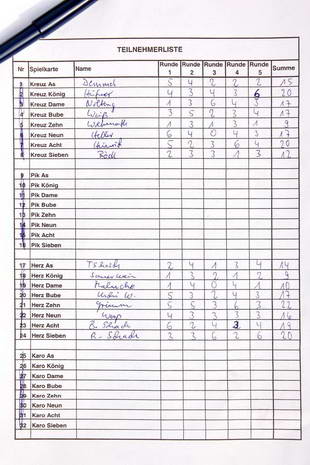 TEILNEHMERLISTE
Nr Spielkarte Name Runde 1 Runde 2 Runde 3 Runde 4 Runde 5 Summe
1 Kreuz As 5 4 2 2 2 15
2 Kreuz König 4 3 4 3 6 20
3 Kreuz Dame Nolting 1 3 6 4 3 17
4 Kreuz Bube Weiß 3 5 2 3 4 17
5 Kreuz Zehn 1 3 1 3 1 9
6 Kreuz Neun Heller 6 4 0 4 3 17
7 Kreuz Acht 5 2 3 6 4 20
8 Kreuz Sieben 2 3 3 1 3 12
9 Pik As
10 Pik König
11 Pik Dame
12 Pik Bube
13 Pik Zehn
14 Pik Neun
15 Pik Acht
16 Pik Sieben
17 Herz As 2 4 1 3 4 14
18 Herz König 1 3 2 1 2 9
19 Herz Dame 1 4 0 4 1 10
20 Herz Bube 5 3 2 4 3 17
21 Herz Zehn Grimm 5 5 3 6 3 22
22 Herz Neun 4 3 3 3 3 16
23 Herz Acht 6 2 4 3 4 19
24 Herz Sieben 3 3 6 2 6 20
25 Karo As
26 Karo König
27 Karo Dame
28 Karo Bube
29 Karo Zehn
30 Karo Neun
31 Karo Acht
32 Karo Sieben